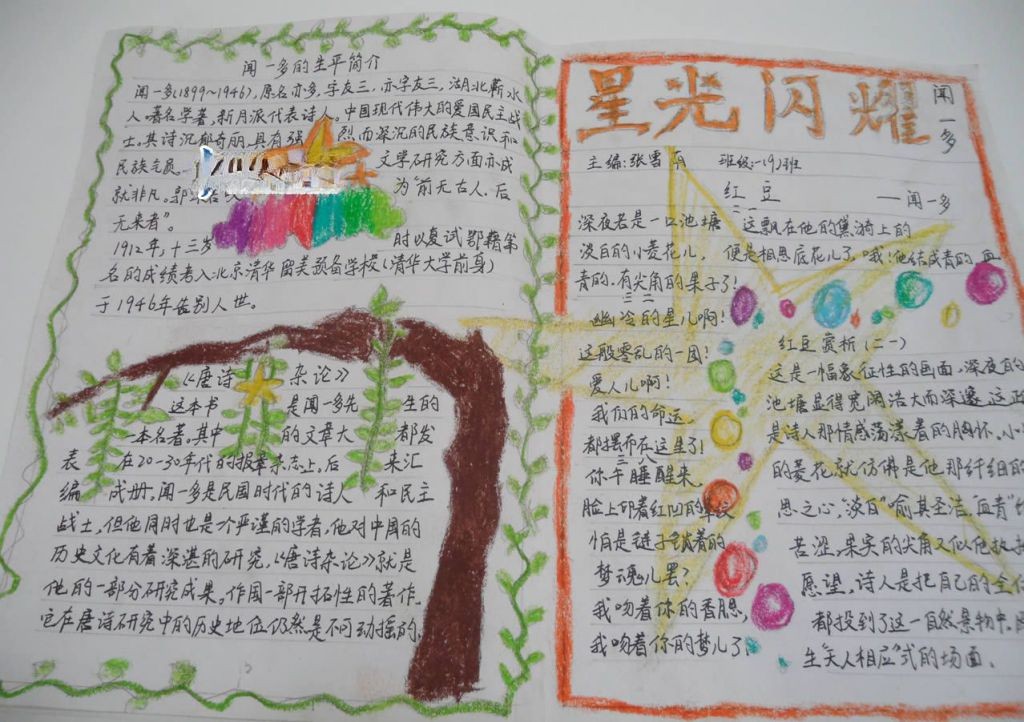 闻一多的生平简介
闻一多(1899~1946),原名亦多,字友三,亦字友三,湖北蕲水
人,著名学者,新月派代表诗人。中国现代伟大的爱国民主战
士。其诗沉郁奇丽,具有强烈而深沉的民族意识和
民族气质。文学研究方面亦成
就非凡。郭沫若 为"前无古人,后
无来者"。
1912年,十三岁时以复试鄂籍第
名的成绩考入北京清华留美预备学校(清华大学前身)
于1946年告别人世。
《唐诗杂论》
这本书是闻一多先生的
一本名著。其中的文章大都发
表在20-30年代的报章杂志上,后来汇
编成册。闻一多是民国时代的诗人和民主
战士,但他同时也是一个严谨的学者,他对中国的
历史文化有着深湛的研究,《唐诗杂论》就是
他的一部分研究成果。作国一部开拓性的著作,
它在唐诗研究中的历史地位仍然是不可动摇的。
星光闪耀
闻一多
主编:张雪 班级:一(9)班
红豆
——闻一多
二
深夜若是一口池塘 这飘在他的黛漪上的
淡白的小菱花儿, 便是相思底花儿了,哦!他结成青的,血
青的,有尖角的果子了!
三二
幽冷的星儿啊!
这般零乱的一团!
爱人儿啊!
我们的命运,
都摆布在这里了!
三八
你午睡醒来,
脸上印着红凹的
怕是链子锁着的
梦魂儿罢?
我吻着你的香腮,
我吻着你的梦儿了。
红豆赏析(二一)
这是一幅象征性的画面,深夜的
池塘显得宽阔浩大而深邃,这正
是诗人那情感荡漾着的胸怀,小
的菱花,就仿佛是他那纤细的
思之心,"淡白"喻其圣洁,"血青"
苦涩,果实的尖角又似他
愿望,诗人是把自己的全
都投到了这一自然景物中,
生"天人相应"式的场面。